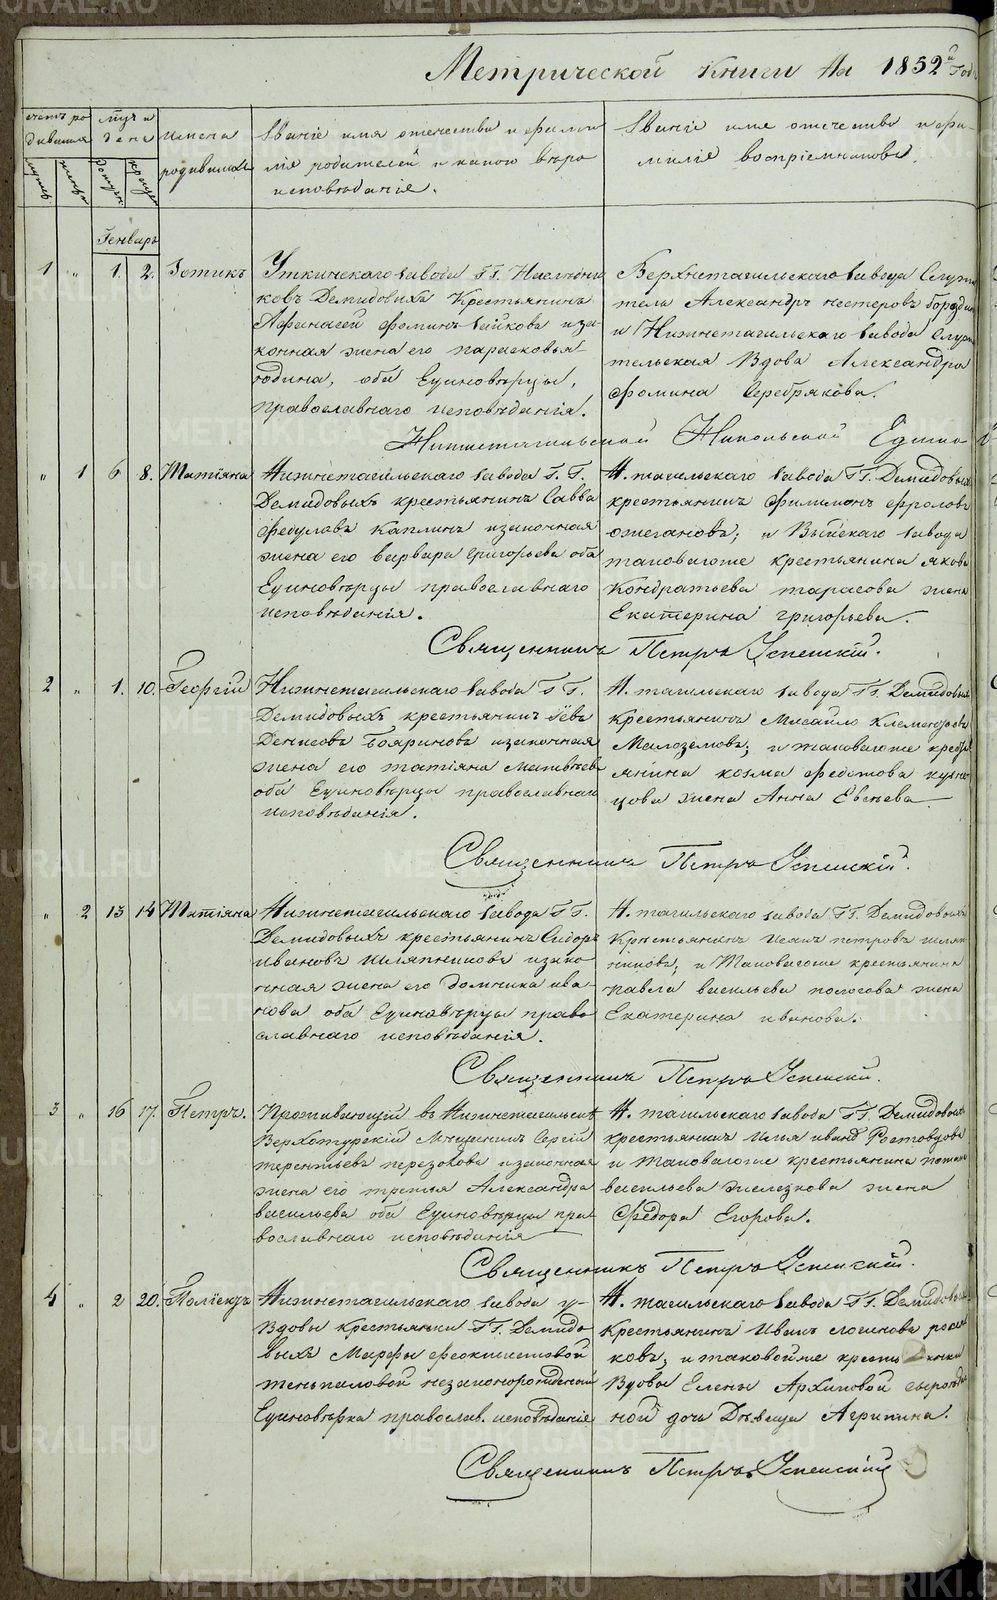 Метрической Книги На 1852й Годъ
счетъ родившихся
мѣсяцъ и день
имена родившихся
Званіе имя отечество и фамилія родителей и какого вѣроисповѣданія.
Званіе имя отечество и фамилія воспріемниковъ.
Генварь
1 „ 1. 2. Зотикъ
Уткинскаго завода ГГ. Наслѣдни
ковъ Демидовыхъ Крестьянинъ
Афанасей Фоминъ Зайковъ иза
конная жена его парасковья
Юдина, оба Единовѣрцы,
Православнаго исповѣданія.
Верхнетагильскаго завода Служи
тель Александръ нестеровъ
и Нижнетагильскаго завода Служи
тельская Вдова Александра
Фомина Серебрякова.
Нижнетагильской Никольской Едино
„ 1 6 8. Татіяна
Нижнетагильскаго завода Г. Г.
Демидовыхъ крестьянинъ Савва
Федуловъ Каплинъ изаконная
жена его варвара Григорьева оба
Единовѣрцы православнаго
исповѣданія.
Н. тагильскаго завода ГГ. Демидовыхъ
крестьянинъ Филимонъ Фроловъ
ожегановъ; и Выйскаго завода
таковагоже крестьянина якова
Кондратьева тарасова жена
Екатерина григорьева.
Священникъ Петръ Успенскій.
2 „ 1. 10. Георгій
Нижнетагильскаго завода ГГ.
Демидовыхъ крестьянинъ
Денисовъ Бояриновъ изаконная
жена его татіяна Матвѣева
оба Единовѣрцы православнаго
исповѣданія.
Н. тагильскаго завода ГГ. Демидовыхъ
крестьянинъ Михайло Клементьевъ
Малоземовъ; и таковагоже кресть
янина козма федотова кузне
цова жена Анна Евсѣева
Священникъ Петръ Успенскій.
„ 2 13 14 Татіяна
Нижнетагильскаго завода ГГ.
Демидовыхъ крестьянинъ Сидоръ
Ивановъ Шляпниковъ изако
нная жена его домника ива
нова оба Единовѣрцы право
славнаго исповѣданія.
Н. тагильскаго завода ГГ. Демидовыхъ
Крестьянинъ Исаія петровъ шляп
никовъ; и Таковагоже крестьянина
Павла васильева пологова жена
Екатерина иванова.
Священникъ Петръ Успенскій.
3 „ 16 17. Петръ.
Проживающій въ Нижнетагильскѣ
Верхотурскій Мѣщанинъ Сергій
терентьевъ перезоловъ изаконная
жена его третья Александра
васильева оба Единовѣрцы пра
вославнаго исповѣданія
Н. тагильскаго завода ГГ. Демидовыхъ
крестьянинъ Илья ивановъ Ростовцовъ
и таковагоже крестьянина
васильева железкова жена
Федора Егорова.
Священникъ Петръ Успенскій.
4 „ 2 20. Поліектъ
Нижнетагильскаго завода у
Вдовы крестьянки ГГ. Демидо
выхъ Марфы Феоктистовой
незаконорожденный
Единовѣрка православ. исповѣданіе
Н. тагильскаго завода ГГ. Демидовыхъ
Крестьянинъ Иванъ логиновъ
ковъ; и таковойже крестьянки
Вдовы Елены Архиповой
ной дочь Дѣвица Агрипина.
Священникъ Петръ Успенскій
METRIKI.GASU-URAL.RU